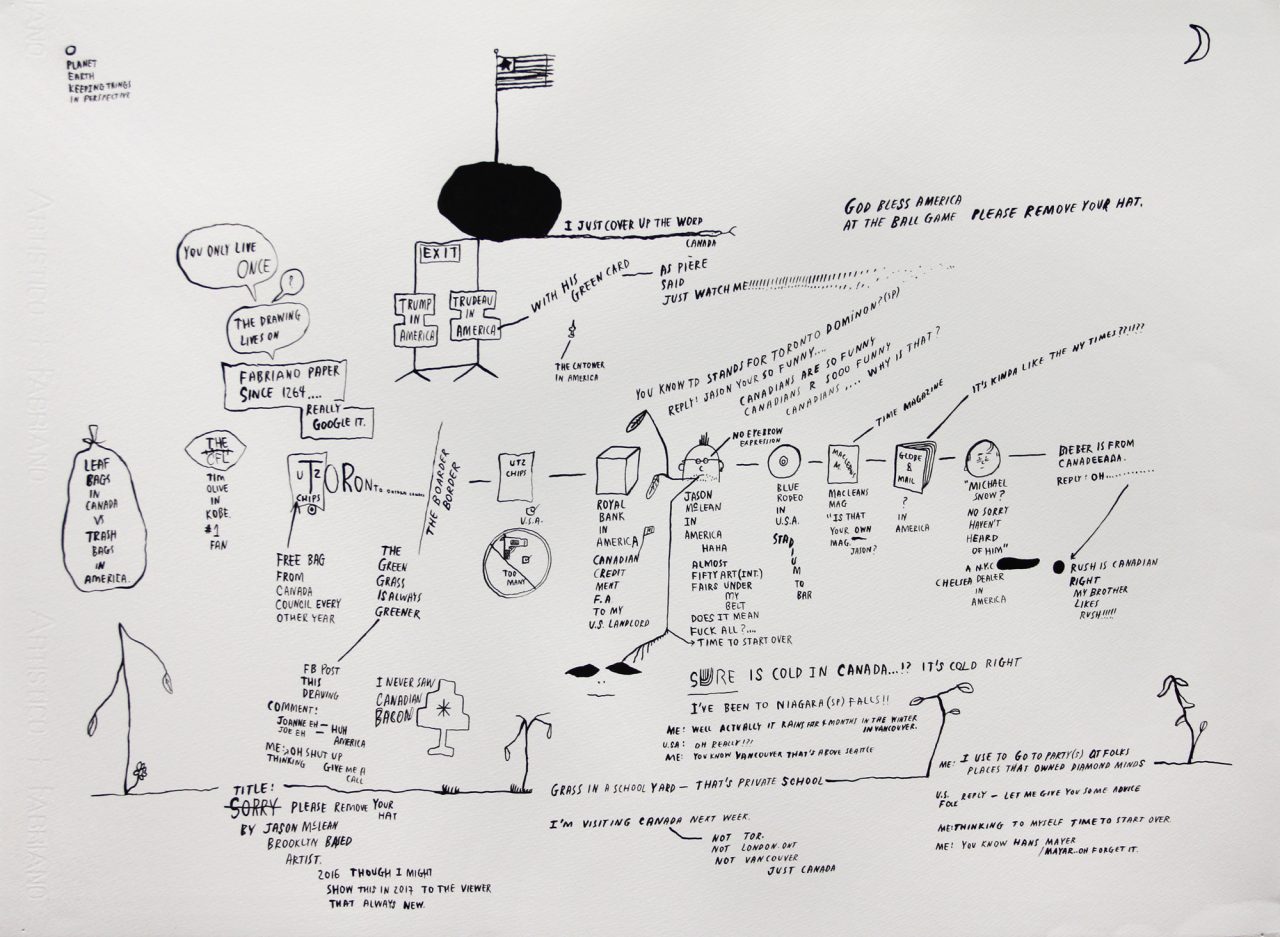 PLANET
EARTH
KEEPING THINGS
IN PERSPECTIVE
GOD BLESS AMERICA
AT THE BALL GAME PLEASE REMOVE YOUR HAT.
I JUST COVER UP THE WORD
CANADA
EXIT
TRUMP
IN
AMERICA
TRUDEAU
IN
AMERICA
WITH HIS
GREEN CARD
AS PIÈRE
SAID
JUST WATCH ME!!!!!!!!!!!!!!!!!!!!!!!!
THE CNTOWER
IN AMERICA
YOU ONLY LIVE
ONCE
?
THE DRAWING
LIVES ON
FABRIANO PAPER
SINCE 1264....
REALLY
GOOGLE IT.
YOU KNOW TD STANDS FOR TORONTO DOMINON?(SP)
REPLY! JASON YOUR SO FUNNY....
CANADIANS ARE SO FUNNY
CANADIANS R SOOO FUNNY
CANADIANS .... WHY IS THAT?
NO EYEBROW
EXPRESSION
TIME MAGAZINE
IT'S KINDA LIKE THE NY TIMES??!!??
LEAF
BAGS
IN
CANADA
VS
TRASH
BAGS
IN
AMERICA.
THE
CFL
TIM
OLIVE
IN
KOBE.
#1
FAN
UTZ
CHIPS
TORONTO
FREE BAG
FROM
CANADA
COUNCIL EVERY
OTHER YEAR
THE BOARDER
BORDER
THE
GREEN
GRASS
IS ALWAYS
GREENER
UTZ
CHIPS
U.S.A.
TOO
MANY
ROYAL
BANK
IN
AMERICA
CANADIAN
CREDIT
MENT
F.A
TO MY
U.S. LANDLORD
JASON
McLEAN
IN
AMERICA
HAHA
ALMOST
FIFTY ART(INT.)
FAIRS UNDER
MY
BELT
DOES IT MEAN
FUCK ALL?....
TIME TO START OVER
BLUE
RODEO
IN
U.S.A.
STADIUM
TO
BAR
MACLEANS
M
MACLEANS
MAG
"IS THAT
YOUR OWN
MAG.
JASON?
GLOBE
&
MAIL
?
IN
AMERICA
"MICHAEL
SNOW?
NO SORRY
HAVEN'T
HEARD
OF HIM"
A N.Y.C
CHELSEA DEALER
IN
AMERICA
BIEBER IS FROM
CANADEEADA.
REPLY: OH............
RUSH IS CANADIAN
RIGHT
MY BROTHER
LIKES
RUSH!!!!!
FB POST
THIS
DRAWING
COMMENT!
JOANNE EH — HUH
JOE EH AMERICA
ME: OH SHUT UP
THINKING GIVE ME A
CALL
I NEVER SAW
CANADIAN
BACON
SURE IS COLD IN CANADA...!? IT'S COLD RIGHT
I'VE BEEN TO NIAGARA (SP) FALLS!!
ME: WELL ACTUALLY IT RAINS FOR MONTHS IN THE WINTER
IN VANCOUVER.
U.S.A: OH REALLY!?!
ME: YOU KNOW VANCOUVER THAT'S ABOVE SEATTLE
GRASS IN A SCHOOL YARD — THAT'S PRIVATE SCHOOL
ME: I USE TO GO TO PARTY(S) AT FOLKS
PLACES THAT OWNED DIAMOND MINDS
U.S.
FOLK REPLY — LET ME GIVE YOU SOME ADVICE
ME: THINKING TO MYSELF TIME TO START OVER.
ME: YOU KNOW HANS MAYER
/MAYAR..OH FORGET IT.
I'M VISITING CANADA NEXT WEEK.
NOT TOR.
NOT LONDON. ONT
NOT VANCOUVER
JUST CANADA
TITLE:
SORRY PLEASE REMOVE YOUR
HAT
BY JASON McLEAN
BROOKLYN BASED
ARTIST.
2016 THOUGH I MIGHT
SHOW THIS IN 2017 TO THE VIEWER
THAT ALWAYS NEW.